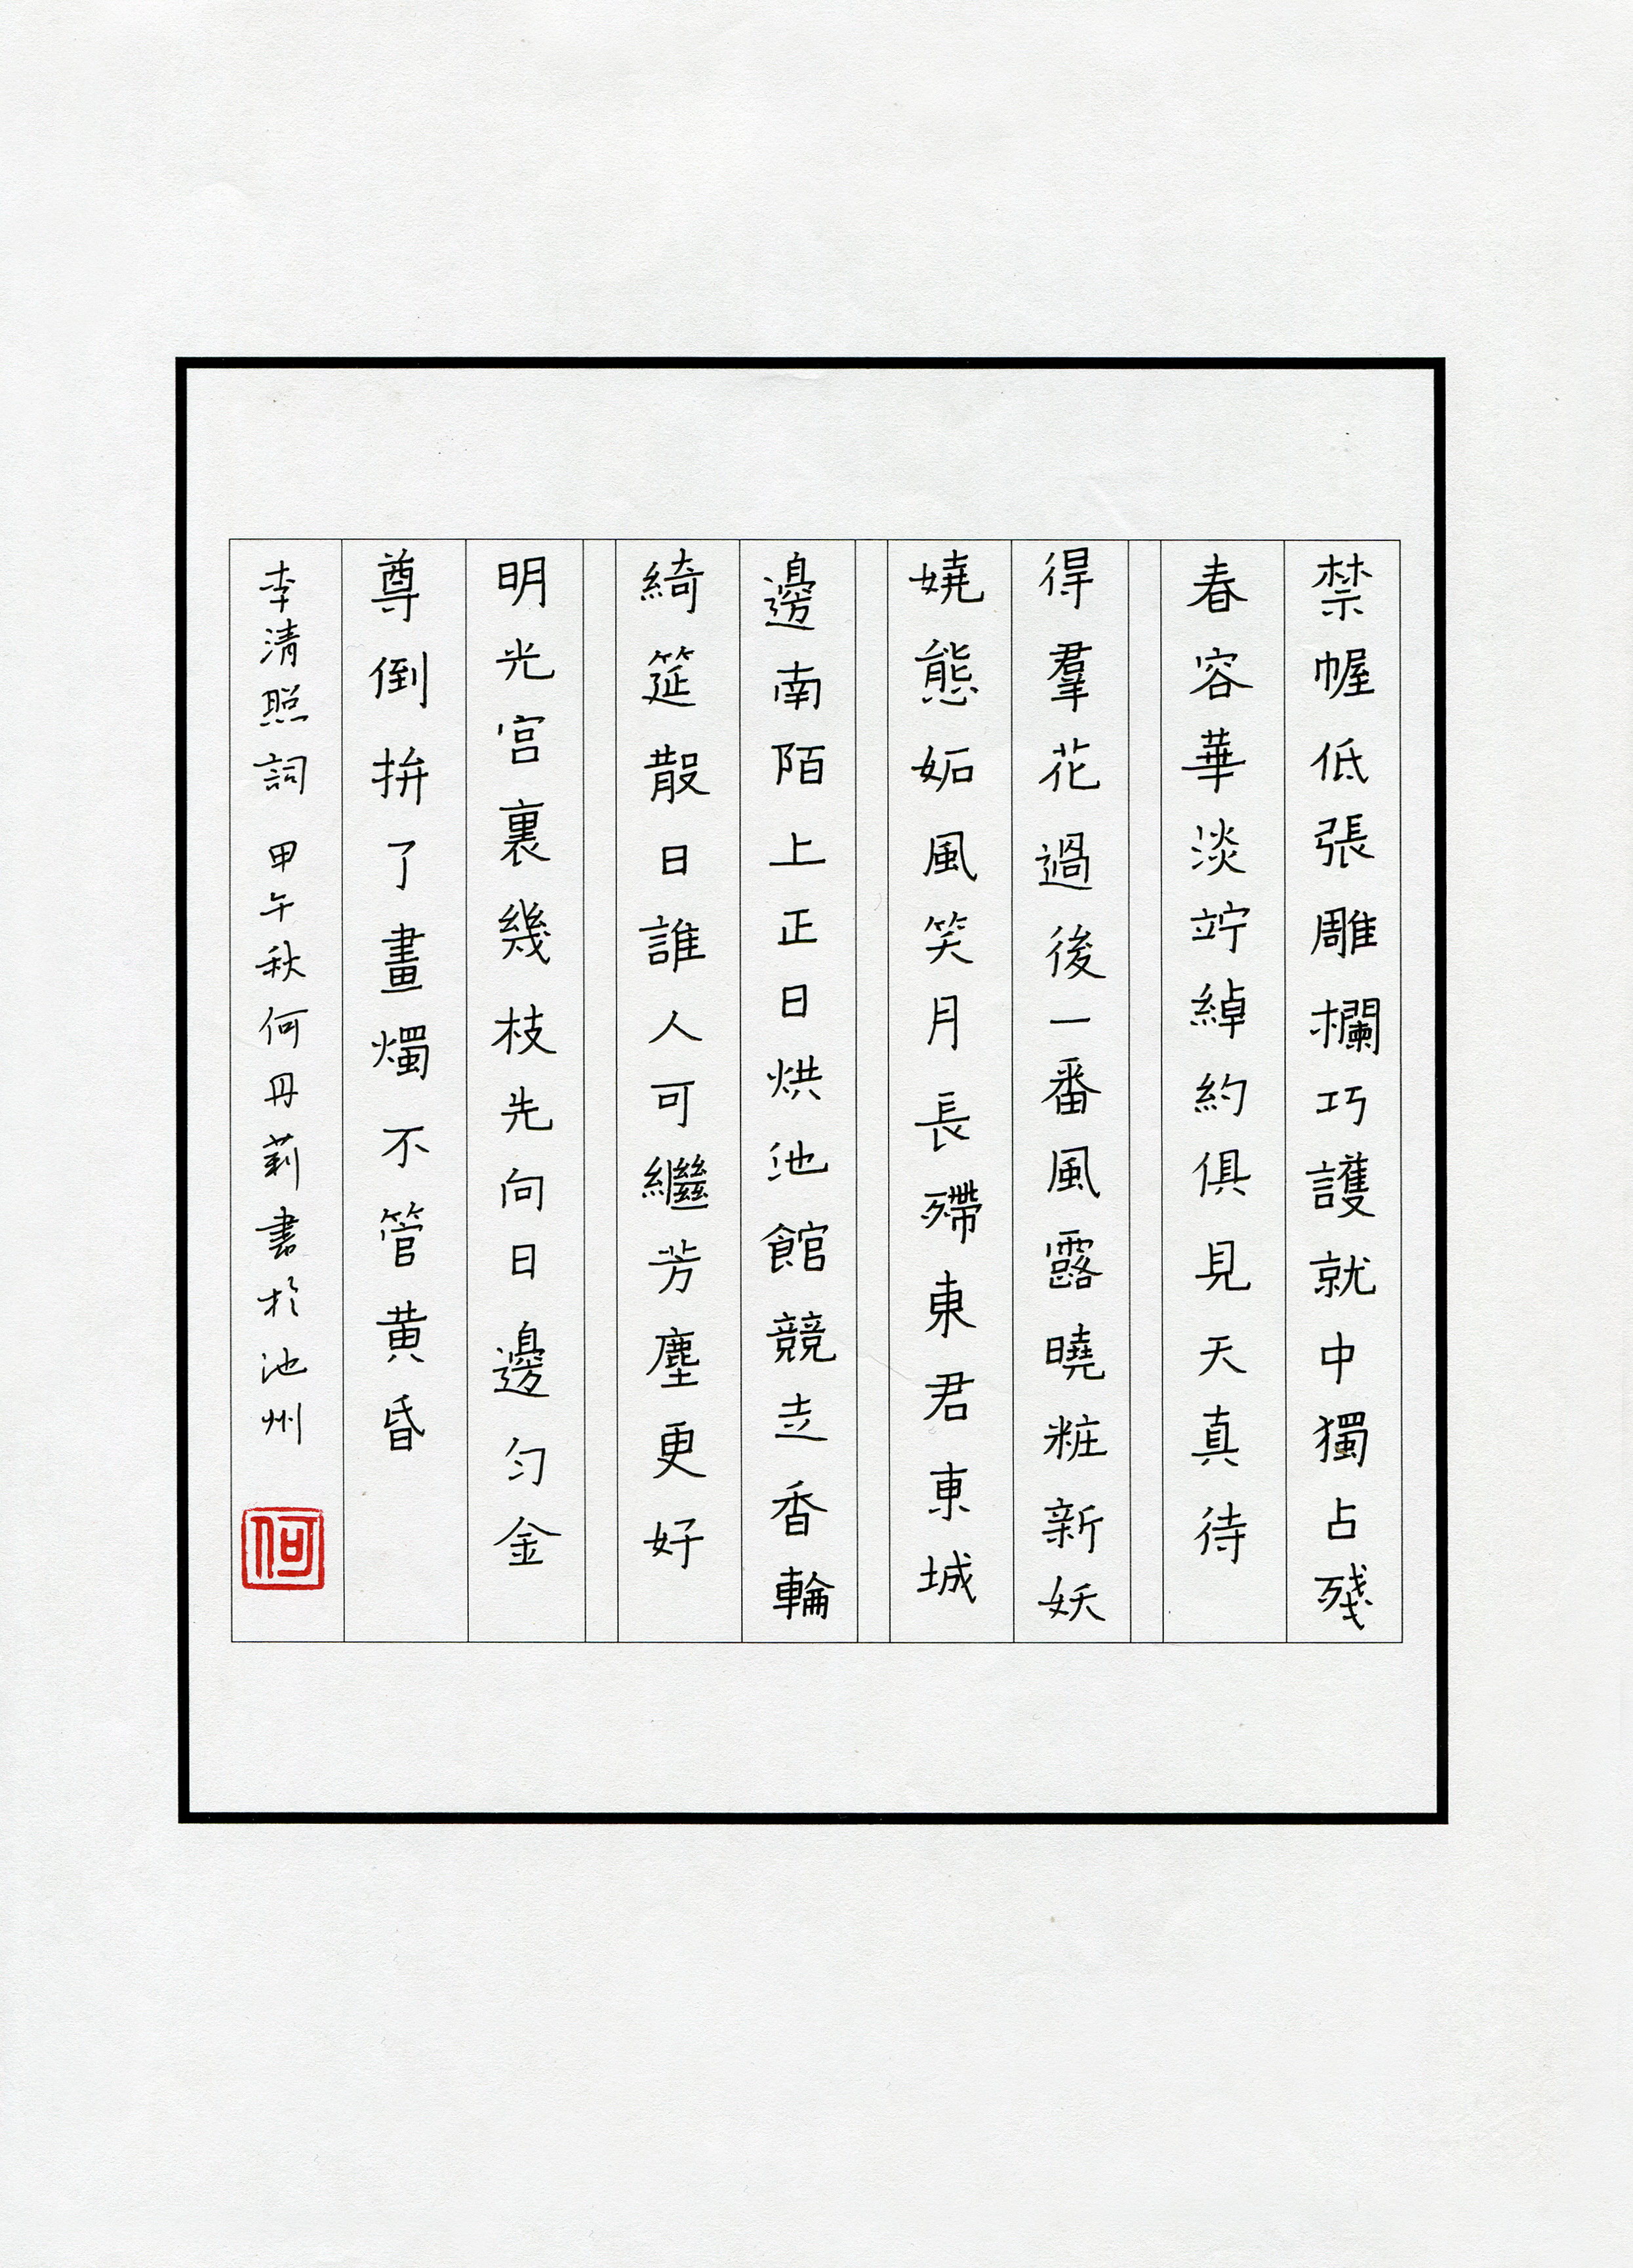 禁幄低張雕欄巧護就中獨占殘
春容華淡竚綽約俱見天真待
得羣花過後一番風露曉粧新妖
嬈態妬風笑月長殢東君東城
邊南陌上正日烘池館競走香輪
綺筵散日誰人可繼芳塵更好
明光宮裏幾枝先向日邊勻金
尊倒拚了畫燭不管黄昏
李清照詞 甲午秋何丹莉書於池州
何